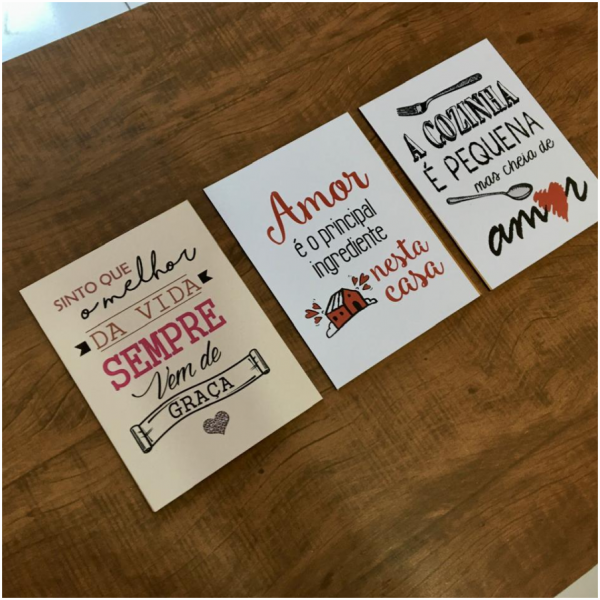 SINTO QUE
o melhor
DA VIDA
SEMPRE
Vem de
GRAÇA
Amor
é o principal
ingrediente
nesta
casa
A COZINHA
É PEQUENA
mas cheia de
amor